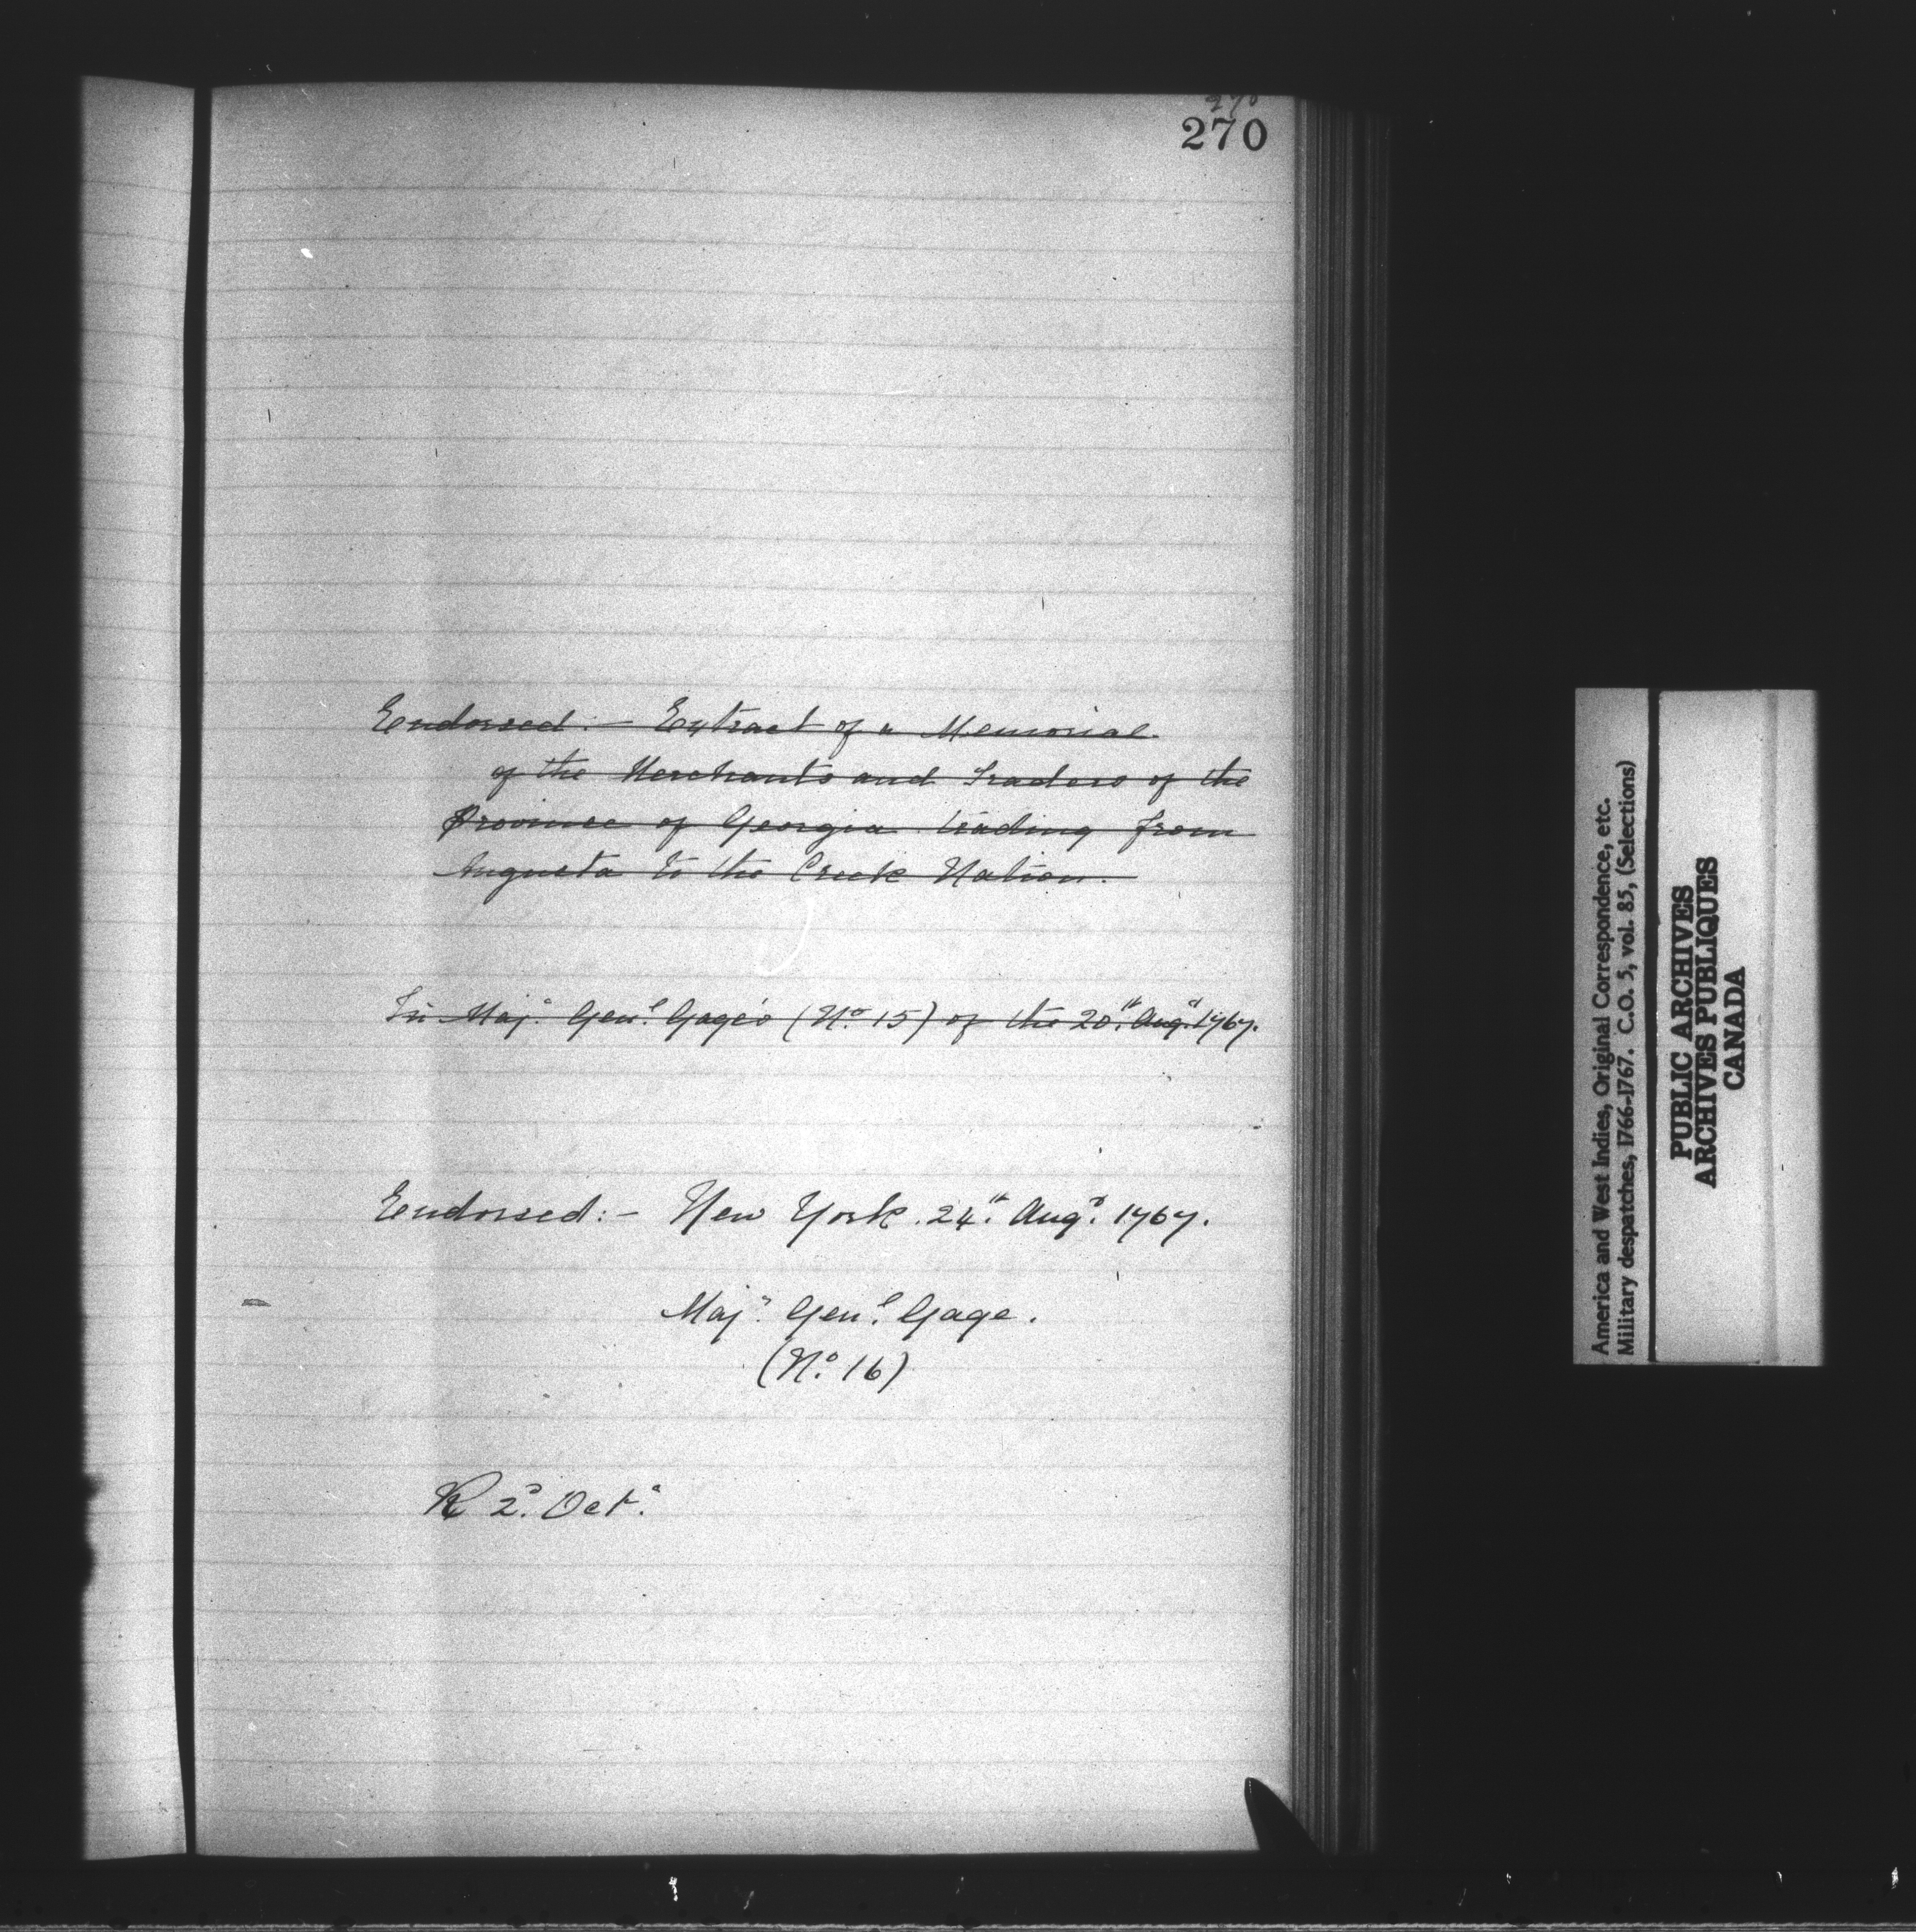 270
270
Endorsed:- Extract of a Memorial
of the Merchants and Traders of the
Province of Georgia trading from
Augusta to the Creek Nation.
In Maj.r Gen.l Gage's (No. 15) of the 20.th Aug.st 1767.
Endorsed:- New York. 24.th Aug.st 1767.
Maj.r Gen.l Gage.
(No. 16)
R 2.d Oct.r
America and West Indies, Original Correspondence, etc.
Military despatches, 1766-1767. C.O. 5, vol. 85, (Selections)
PUBLIC ARCHIVES
ARCHIVES PUBLIQUES
CANADA